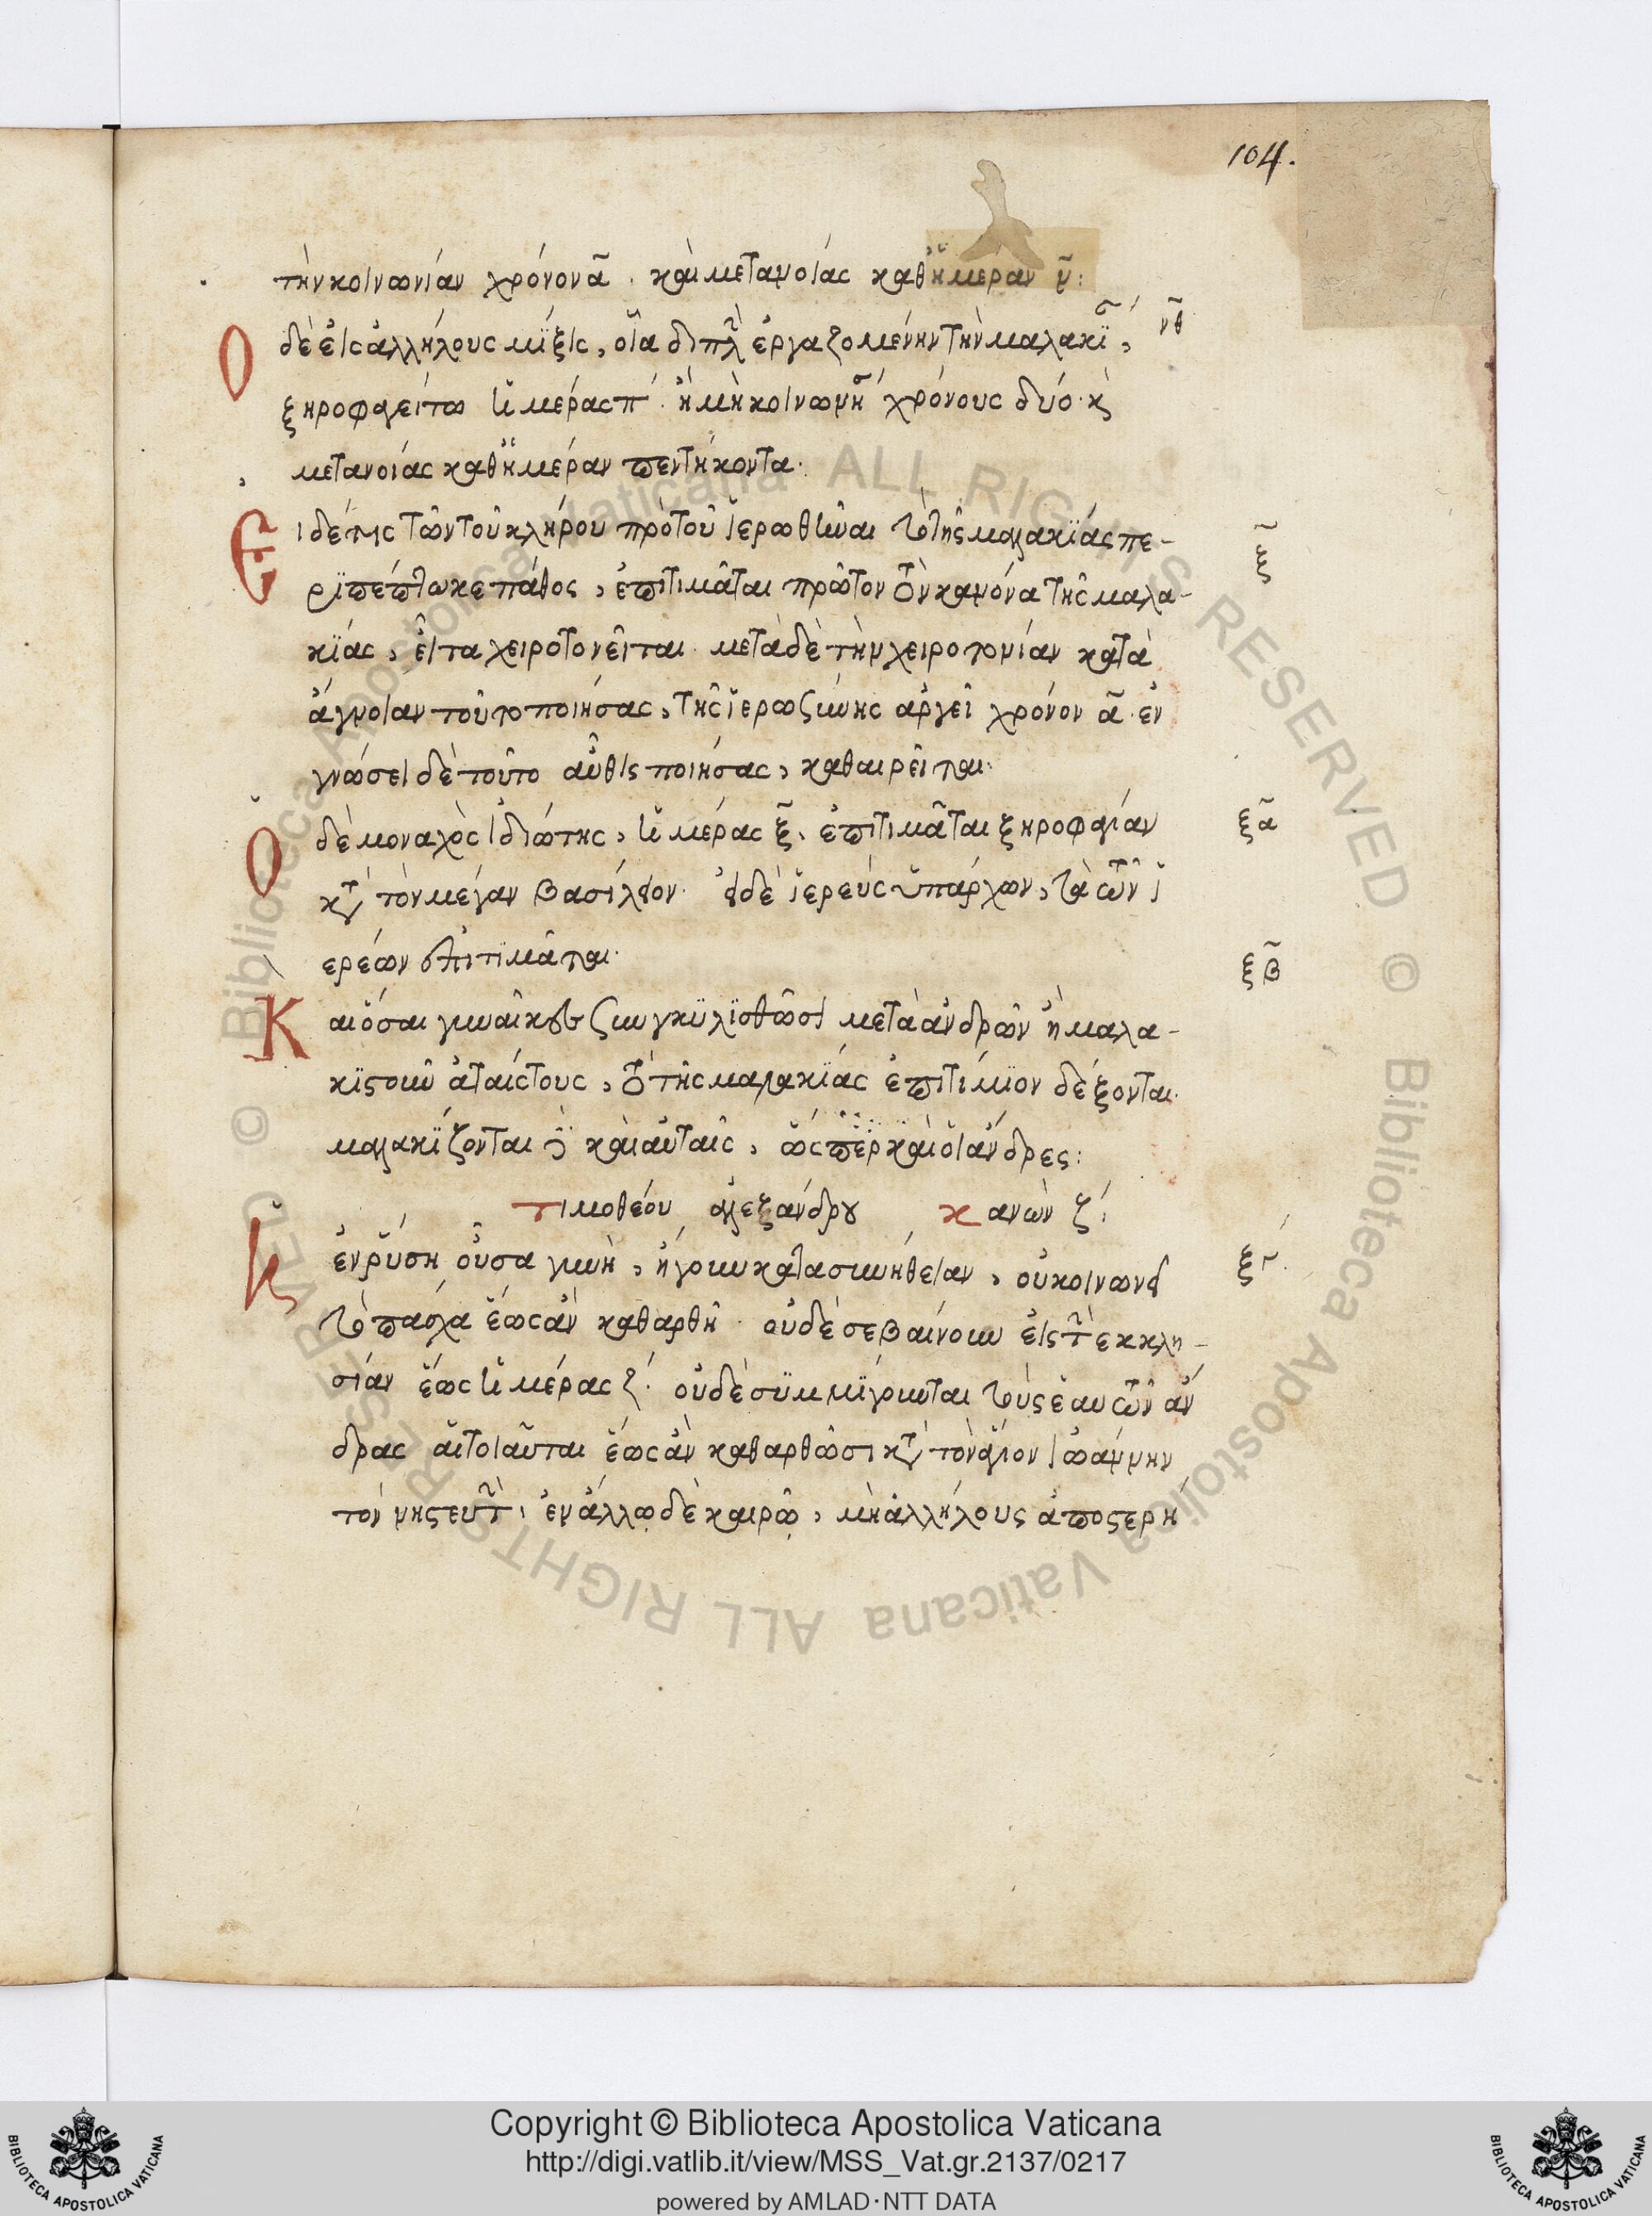 104.
τὴν κοινωνίαν χρόνον α̃. καὶ μετανοίας καθἡμέραν ν̃:
Ο δὲ εἰς ἀλλήλους μίξις, οἷα διπλ ἐργαζομένην τὴν μαλακί, νθ
ξηροφαγείτω ἡμέρας π. ἢ μὴ κοινωνῆ χρόνους δύο. κ
μετανοίας καθἡμέραν πεντήκοντα.
Ει δέ τις τῶν τοῦ κλήρου πρὸ τοῦ ἱερωθῆναι τὸ τῆς μαλακίας πε-
ξ̃
ριπέπτωκε πάθος, ἐπιτιμᾶται πρῶτον τὸν κανόνα τῆς μαλα-
κίας, εἶτα χειροτονεῖται. μετὰ δὲ τὴν χειροτονίαν κατὰ
ἄγνοιαν τοῦτο ποιήσας, τῆς ἱερωσύνης ἀργεῖ χρόνον α̃. ἐν
γνώσει δὲ τοῦτο αὖθις ποιήσας, καθαιρεῖται.
Ο δὲ μοναχὸς ἰδιώτης, ἡμέρας ξ̃. ἐπιτιμᾶται ξηροφαγίαν ξα̃
κατὰ τὸν μέγαν βασίλειον. εἰ δὲ ἱερεὺς ὑπάρχων, τὰ τῶν ἱ
ερέων ἐπιτιμᾶται.
ξβ̃
Και ὅσαι γυναῖκες συγκυλισθῶσι μετὰ ἀνδρῶν ἢ μαλα-
κισθοῦν ἀταίςτους, τὸ τῆς μαλακίας ἐπιτίμιον δέξονται.
μαλακίζονται γὰρ καὶ αὐταῖς, ὥςπερ καὶ οἱ ἄνδρες:
τιμοθέου ἀλεξάνδρου κανὼν ζ:
Η ἐν ρύση οὖσα γυνὴ, ἤγουν κατασυνήθειαν, οὐ κοινωνεῖ ξγ.
τὸ πάσχα ἕως ἂν καθαρθῆ. οὐδὲ σεβαίνουν εἰς τὴν ἐκκλη-
σίαν ἕως ἡμέρας ζ. οὐδὲ συμμίγουνται τοὺς ἑαυτῶν ἄν
δρας αἱ τοιαῦται ἕως ἂν καθαρθῶσι κατὰ τὸν ἅγιον ἰωάννην
τὸν νηςευτὴν. ἐν ἄλλω δὲ καιρῶ, μὴ ἀλλήλους ἀποςερῆ
Copyright © Biblioteca Apostolica Vaticana
http://digi.vatlib.it/view/MSS_Vat.gr.2137/0217
powered by AMLAD·NTT DATA
BIBLIOTECA APOSTOLICA VATICANA
BIBLIOTECA APOSTOLICA VATICANA
© Biblioteca Apostolica Vaticana ALL RIGHTS RESERVED © Biblioteca Apostolica Vaticana ALL RIGHTS RESERVED